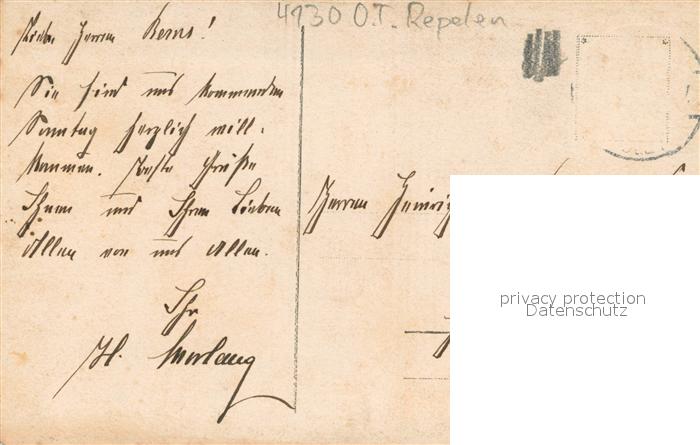 4130 O.T. Repelen
Lieber Herr Kerns!
Sie sind uns kommenden
Sonntag herzlich will-
kommen. Beste Grüße
Ihnen und Ihren Lieben
Allen von uns Allen.
Ihr
H.
Herrn Heinrich
privacy protection
Datenschutz